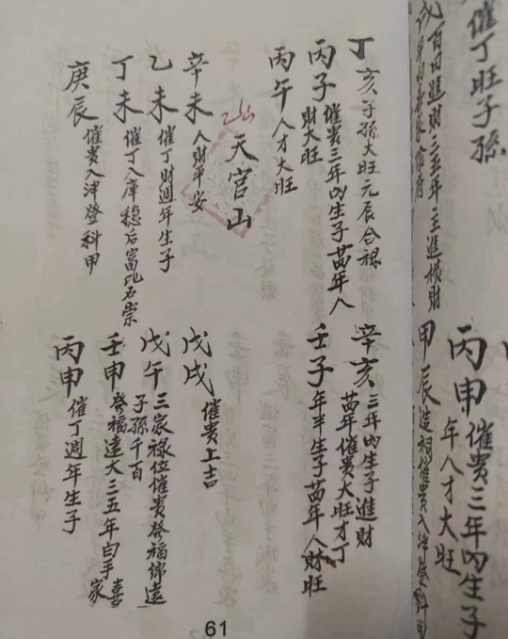 催丁旺子孫
戌 百日進財三五年主進横財
丙申 催貴三年内生子
年人才大旺
甲辰 造祠催貴入泮登科甲
丁亥 子孫大旺元辰合祿
丙子 催貴三年内生子萬年人
財大旺
丙午 人才大旺
辛亥 三年内生子進財
萬年催貴大旺才丁
壬子 年半生子萬年人財旺
天官山
辛未 人財平安
乙未 催丁財週年生子
丁未 催丁入庫穩后富比石崇
庚辰 催貴入泮登科甲
戊戌 催貴上吉
戊午 三家祿位催貴發福綿遠
子孫千百
壬申 發福遠大三五年白手喜家
丙申 催丁週年生子
61